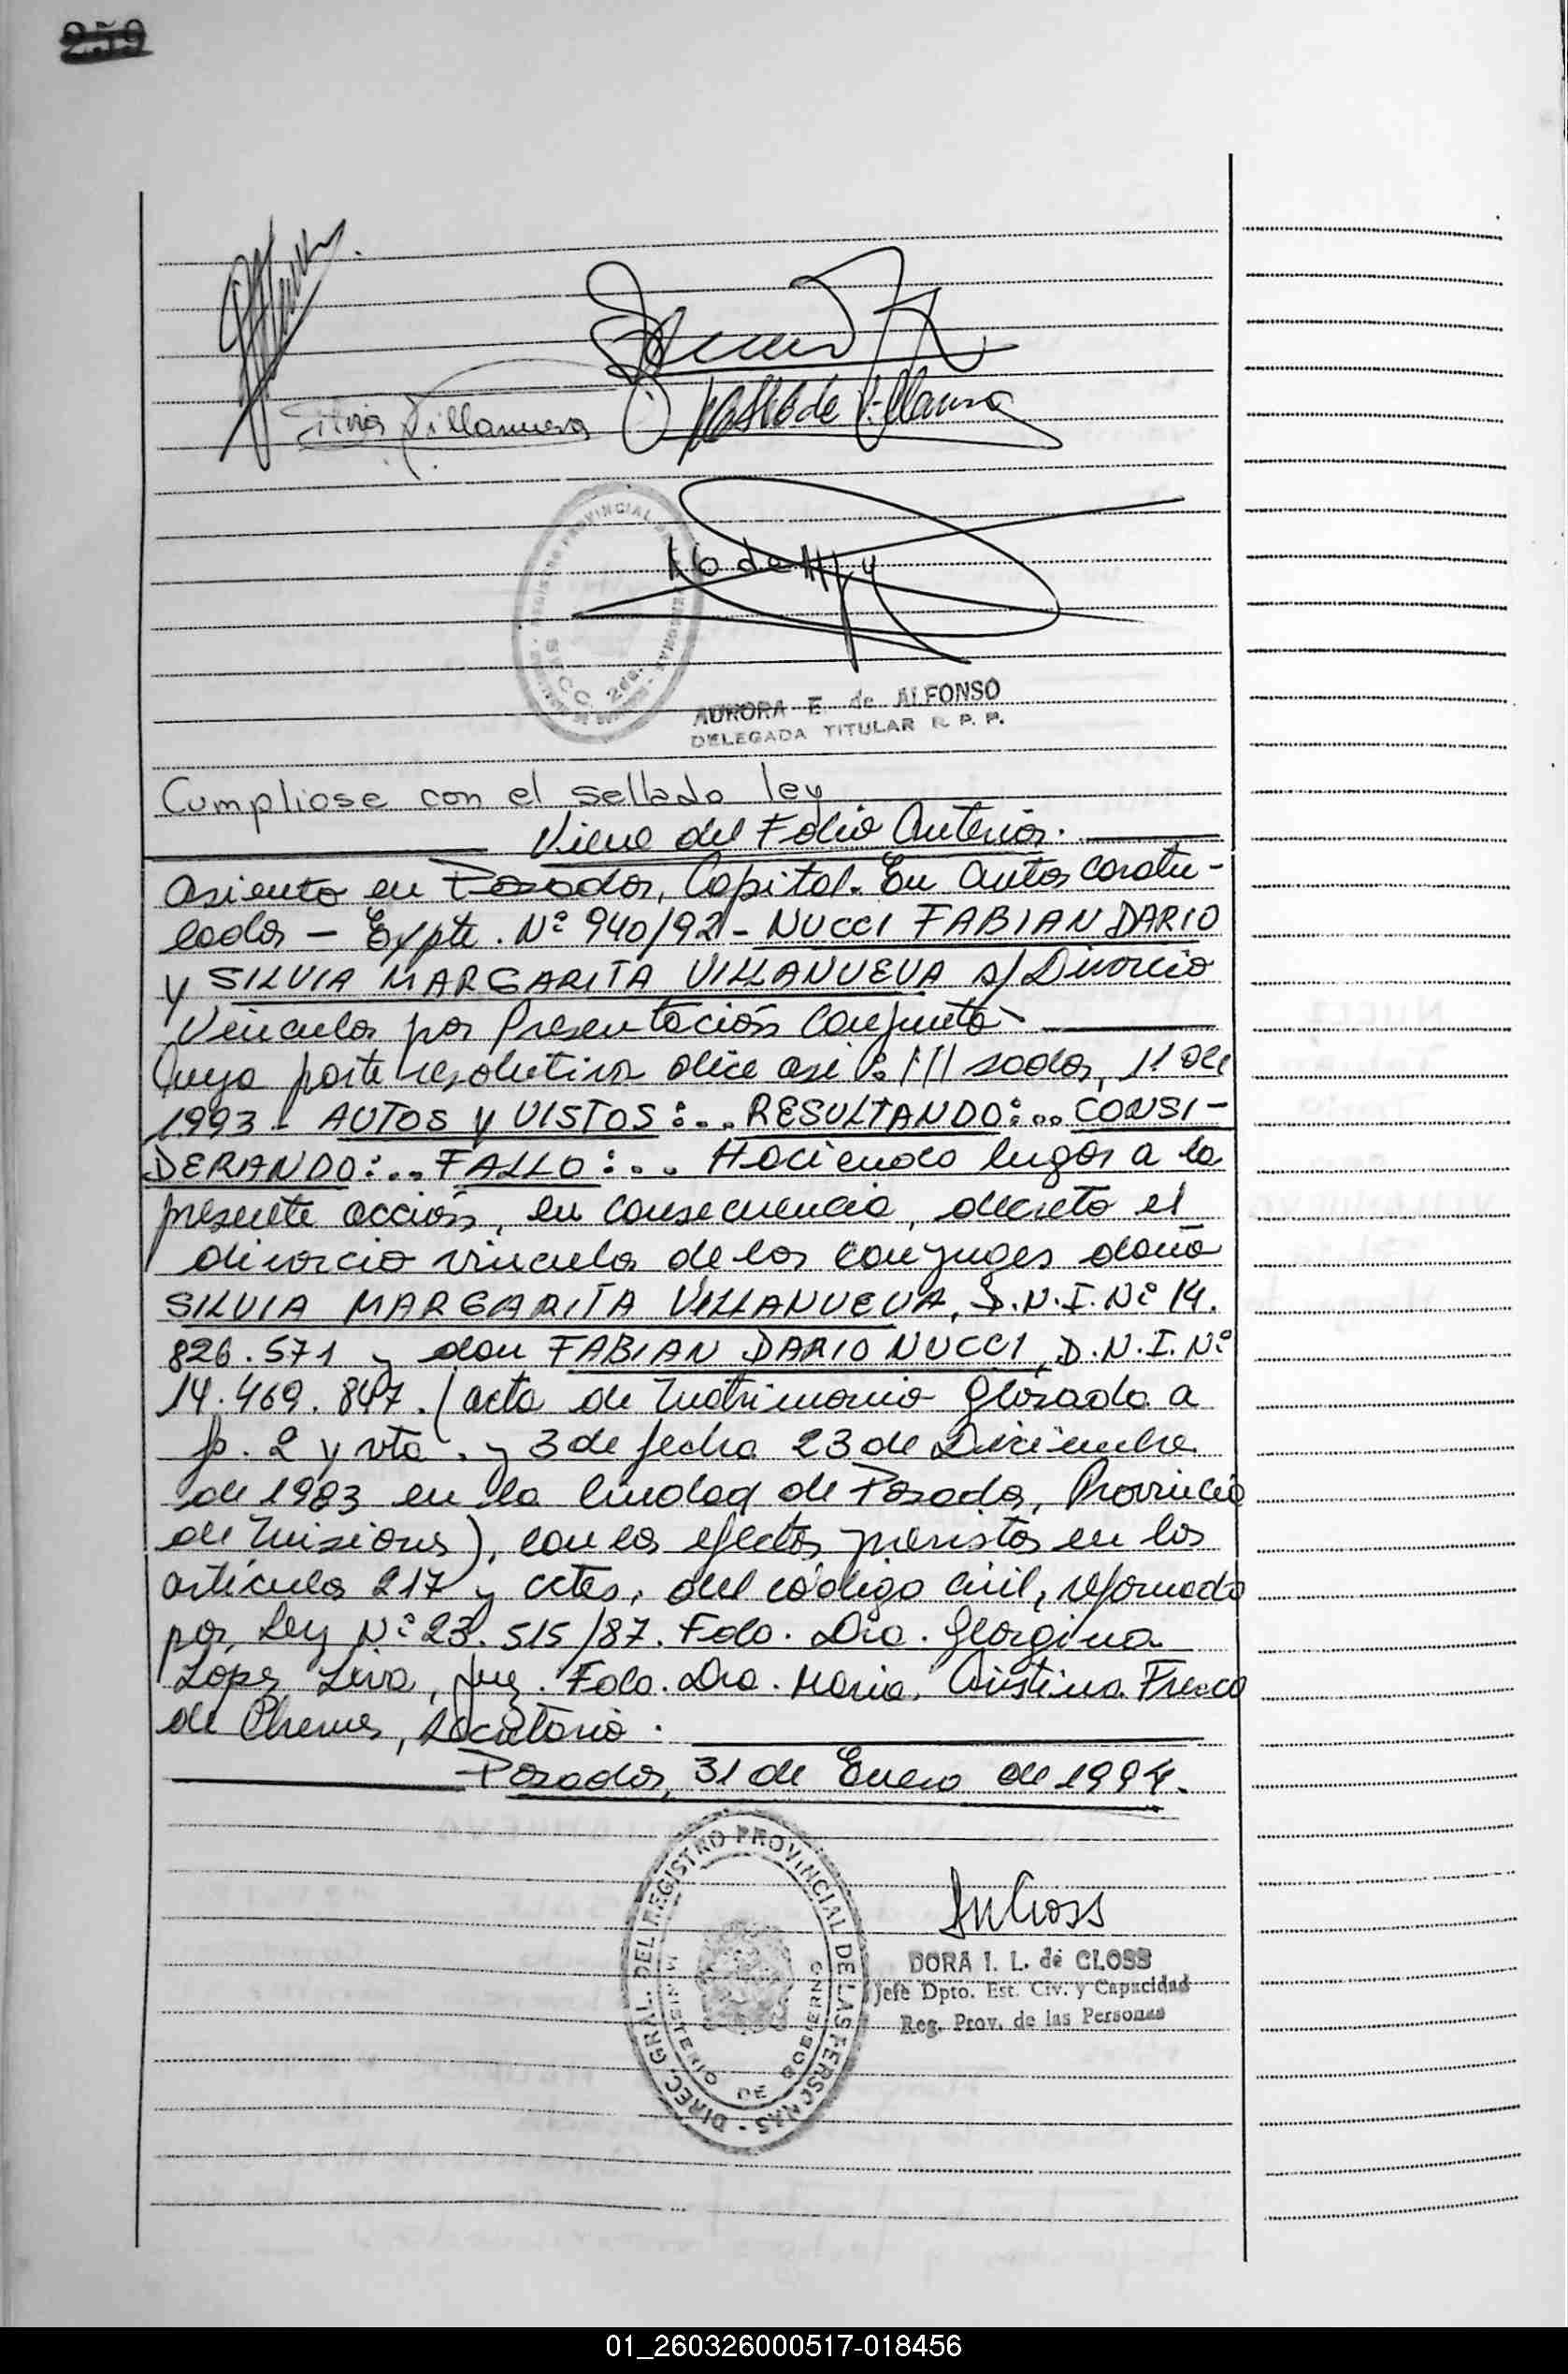 259
Silvia Villanueva
de Villanueva
AURORA E. de ALFONSO
DELEGADA TITULAR R. P. P.
Cumpliose con el sellado ley
Viene del Folio Anterior.
asiento en Posadas, Capital. En autos caratu-
lados - Expte. Nº 940/92 - NUCCI FABIAN DARIO
y SILVIA MARGARITA VILLANUEVA s/ Divorcio
Vincular por Presentación Conjunta -
Cuya parte resolutiva dice asi: /// sadas, 11 de
1993 - AUTOS y VISTOS:.. RESULTANDO:.. CONSI-
DERANDO:.. FALLO:.. Haciendo lugar a la
presente acción, en consecuencia, decreto el
divorcio vincular de los conyuges doña
SILVIA MARGARITA VILLANUEVA, D.N.I. Nº 14.
826.571 y don FABIAN DARIO NUCCI, D.N.I. Nº
14.469.847. (acta de Matrimonio glosada a
fs. 2 y vta. y 3 de fecha 23 de Diciembre
de 1983 en la Ciudad de Posadas, Provincia
de Misiones), con los efectos previstos en los
artículos 217 y cctes. del código civil, reformado
por Ley Nº 23.515/87. Fdo. Dra. Georgina
López Liva, Juez. Fdo. Dra. Maria Cristina Fresco
de Chemes, Secretaria.
Posadas, 31 de Enero de 1994.
DIREC. GRAL. DEL REGISTRO PROVINCIAL DE LAS PERSONAS
MINISTERIO DE GOBIERNO
DORA I. L. de CLOSS
Jefe Dpto. Est. Civ. y Capacidad
Reg. Prov. de las Personas
01_260326000517-018456